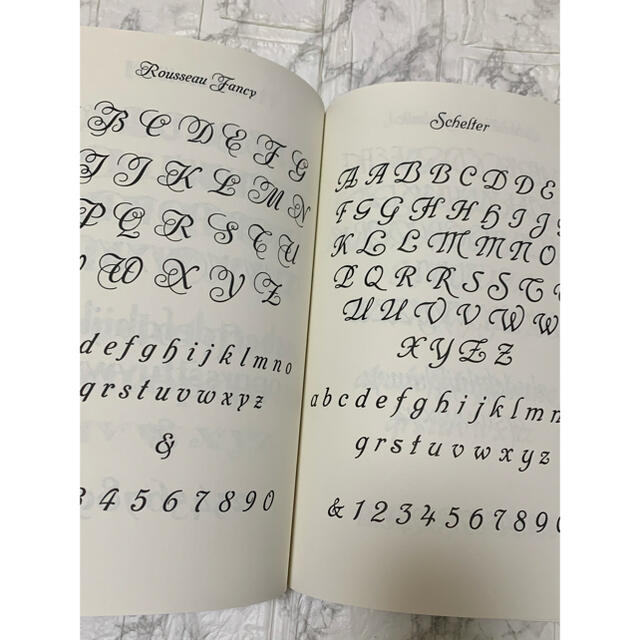 Rousseau Fancy
B C D E F G
I J K L M N
P Q R S T U
V W X Y Z
d e f g h i j k l m n o
q r s t u v w x y z
&
3 4 5 6 7 8 9 0
Schelter
A A B B C D D E
F G G H H H I J
K L L M M N O
P Q R R R S S T
U U V V V W W
X Y Z Z
a b c d e f g h i j k l m n
q r s t u v w x y z
& 1 2 3 4 5 6 7 8 9 0